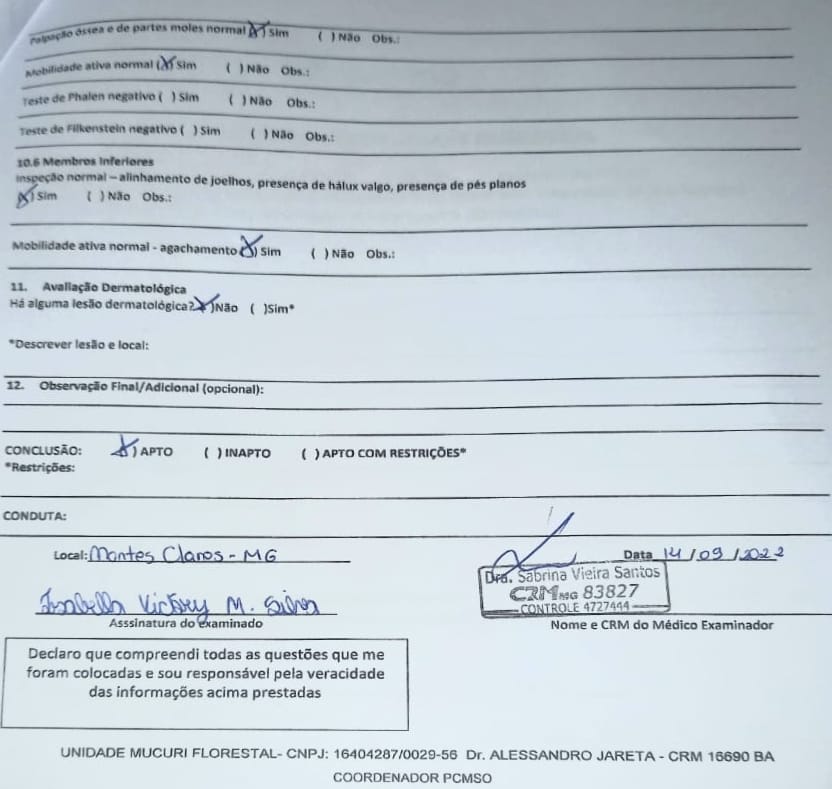 Palpação óssea e de partes moles normal (X) Sim ( ) Não Obs.:
Mobilidade ativa normal (X) Sim ( ) Não Obs.:
Teste de Phalen negativo ( ) Sim ( ) Não Obs.:
Teste de Filkenstein negativo ( ) Sim ( ) Não Obs.:
10.6 Membros Inferiores
Inspeção normal – alinhamento de joelhos, presença de hálux valgo, presença de pés planos
(X) Sim ( ) Não Obs.:
Mobilidade ativa normal - agachamento (X) Sim ( ) Não Obs.:
11. Avaliação Dermatológica
Há alguma lesão dermatológica? (X)Não ( )Sim*
*Descrever lesão e local:
12. Observação Final/Adicional (opcional):
CONCLUSÃO: (X) APTO ( ) INAPTO ( ) APTO COM RESTRIÇÕES*
*Restrições:
CONDUTA:
Local: Montes Claros - MG
Data 14/09/2022
Dra. Sabrina Vieira Santos
CRMMG 83827
CONTROLE 4727444
Isabella Victory M. Silva
Asssinatura do examinado
Nome e CRM do Médico Examinador
Declaro que compreendi todas as questões que me
foram colocadas e sou responsável pela veracidade
das informações acima prestadas
UNIDADE MUCURI FLORESTAL- CNPJ: 16404287/0029-56 Dr. ALESSANDRO JARETA - CRM 16690 BA
COORDENADOR PCMSO